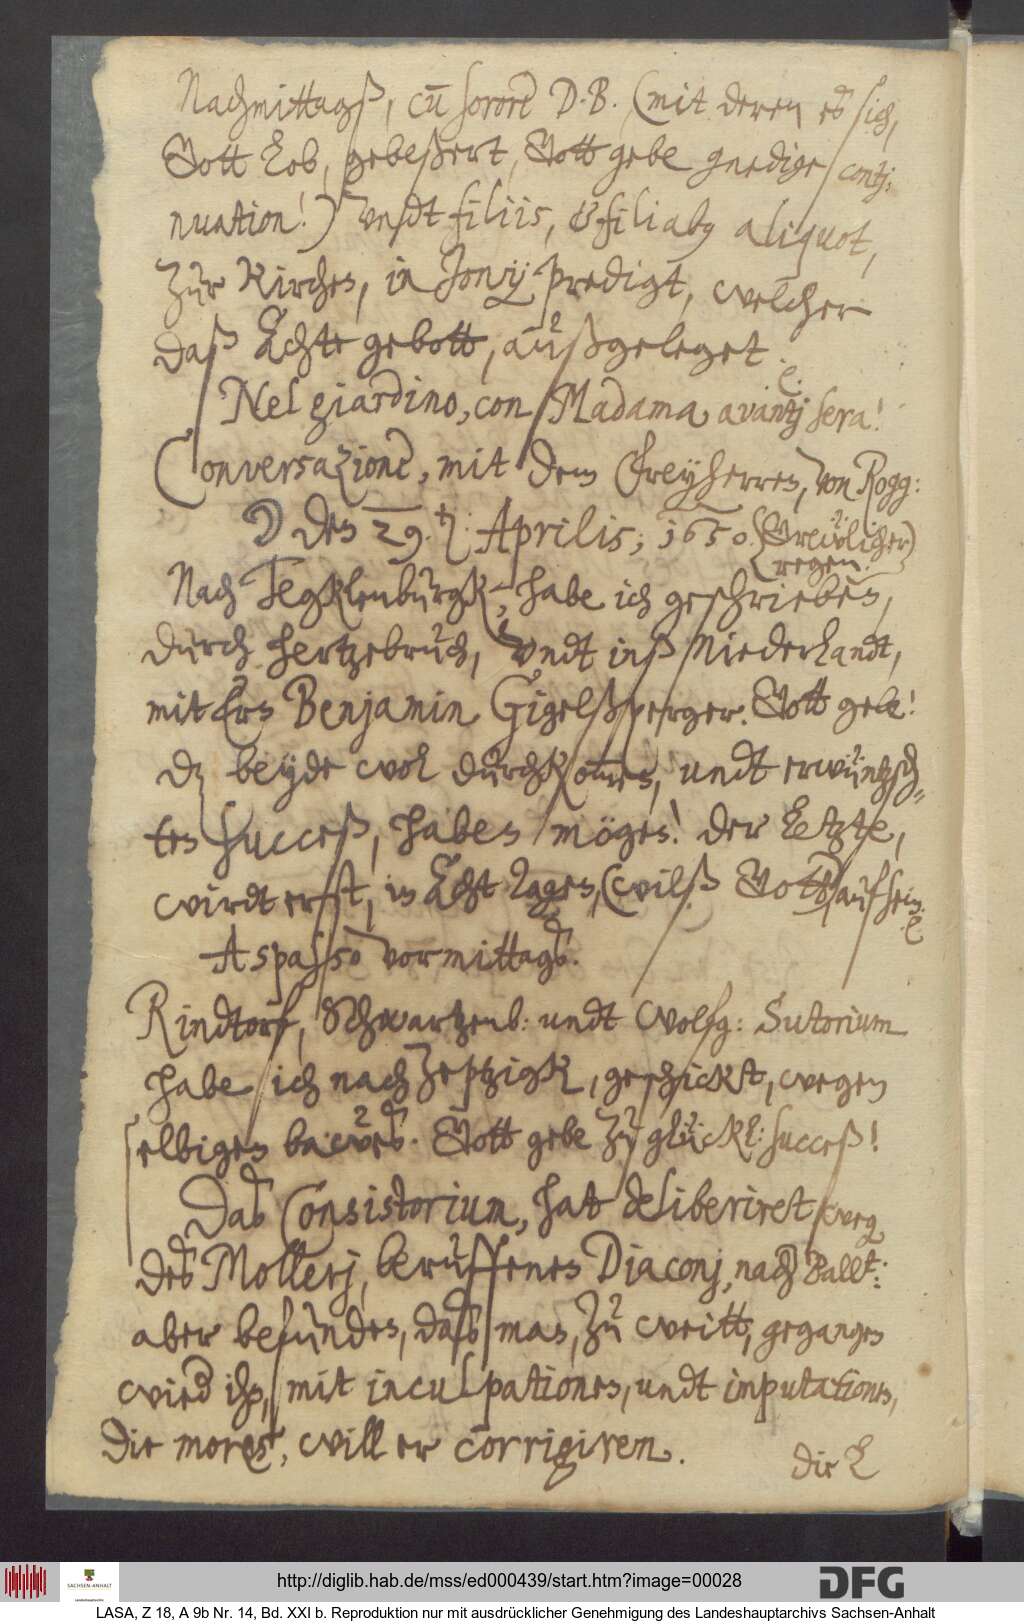 Nachmittagß, cū sorore D. B. (mit deren es sich,
Gott Lob, gebeßert, Gott gebe gnedige contj:
nuation!) undt filiis, & filiabus aliquot,
zur Kirchen, in Jonij predigt, welcher
daß Achte gebott, außgeleget.
Nel giardino, con Madama avantj sera!
Conversazione, mit dem Freyherren, von Rogg:
☽ den 29. Aprilis; 1650. (Grewlicher
regen.)
Nach Tegklenburgk, habe ich geschrieben,
durch Hertzebruch, undt inß Niederlandt,
mit Ern Benjamin Gigelßperger. Gott gebe!
dz beyde wol durchkom̄en, undt erwüntzsch„
ten succeß, haben mögen! Der Letzte,
wirdt erst, in Acht tagen, (wilß Gott) auf sein.
A spasso vormittags.
Rindtorf, Schwartzenb: undt Wolfg: Sutorium
habe ich nach Zeptzigk, geschickt, wegen
selbigen bawes. Gott gebe zu glückl: succeß!
Das Consistorium, hat deliberiret weg.
des Mollerj, beruffenen Diaconj, nach Ballt:
aber befunden, das man, zu weitt, gegangen
wied ihn, mit inculpationen, undt imputationen,
Die mores, will er corrigiren.
Die L
http://diglib.hab.de/mss/ed000439/start.htm?image=00028
SACHSEN-ANHALT
DFG
LASA, Z 18, A 9b Nr. 14, Bd. XXI b. Reproduktion nur mit ausdrücklicher Genehmigung des Landeshauptarchivs Sachsen-Anhalt